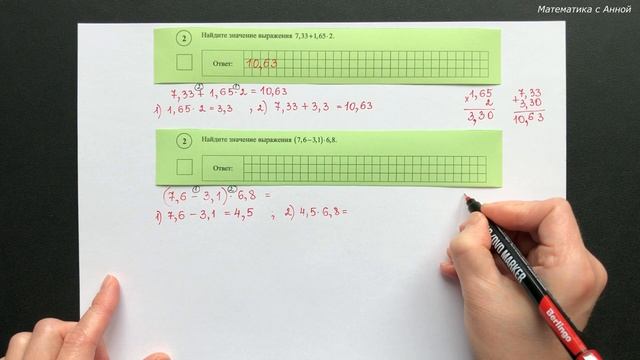 Математика с Анной
2 Найдите значение выражения 7,33+1,65·2.
Ответ: 10,63
7,33 + 1,65 · 2 = 10,63
1) 1,65 · 2 = 3,3 , 2) 7,33 + 3,3 = 10,63
× 1,65
2
3,30
+ 7,33
3,30
10,63
2 Найдите значение выражения (7,6−3,1)·6,8.
Ответ:
(7,6 − 3,1) · 6,8 =
1) 7,6 − 3,1 = 4,5 , 2) 4,5 · 6,8 =
CD/DVD MARKER
Berlingo